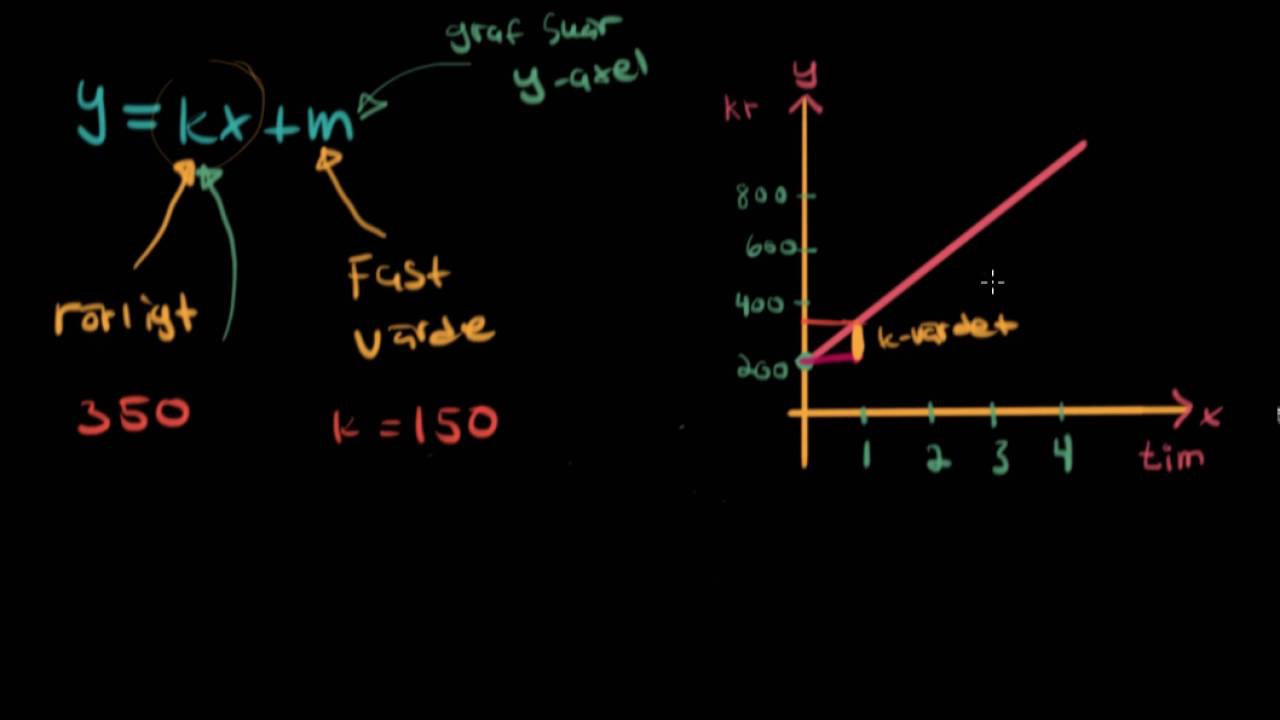 graf skär
y-axel
y = kx + m
rörligt
Fast
värde
350
k = 150
y
kr
800
600
400
200
k-värdet
1 2 3 4
x
tim